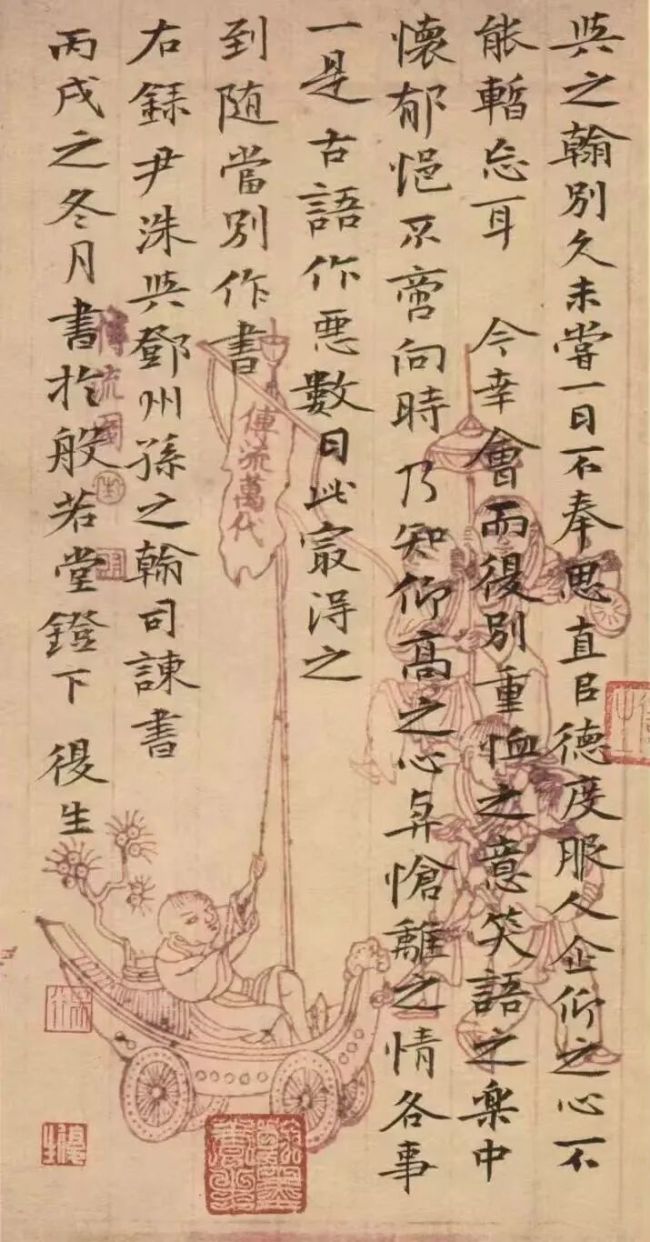 與之翰別久未嘗一日不奉思直臣德度服人企仰之心不
能暫忘耳 今幸會而復別重恤之意笑語之樂中
懷郁悒不啻向時乃知仰高之心與愴離之情各事
一是古語作惡數日此寂得之
到随當別作書
右録尹洙與鄧州孫之翰司諫書
丙戌之冬月書於般若堂鐙下 復生
傳流萬代